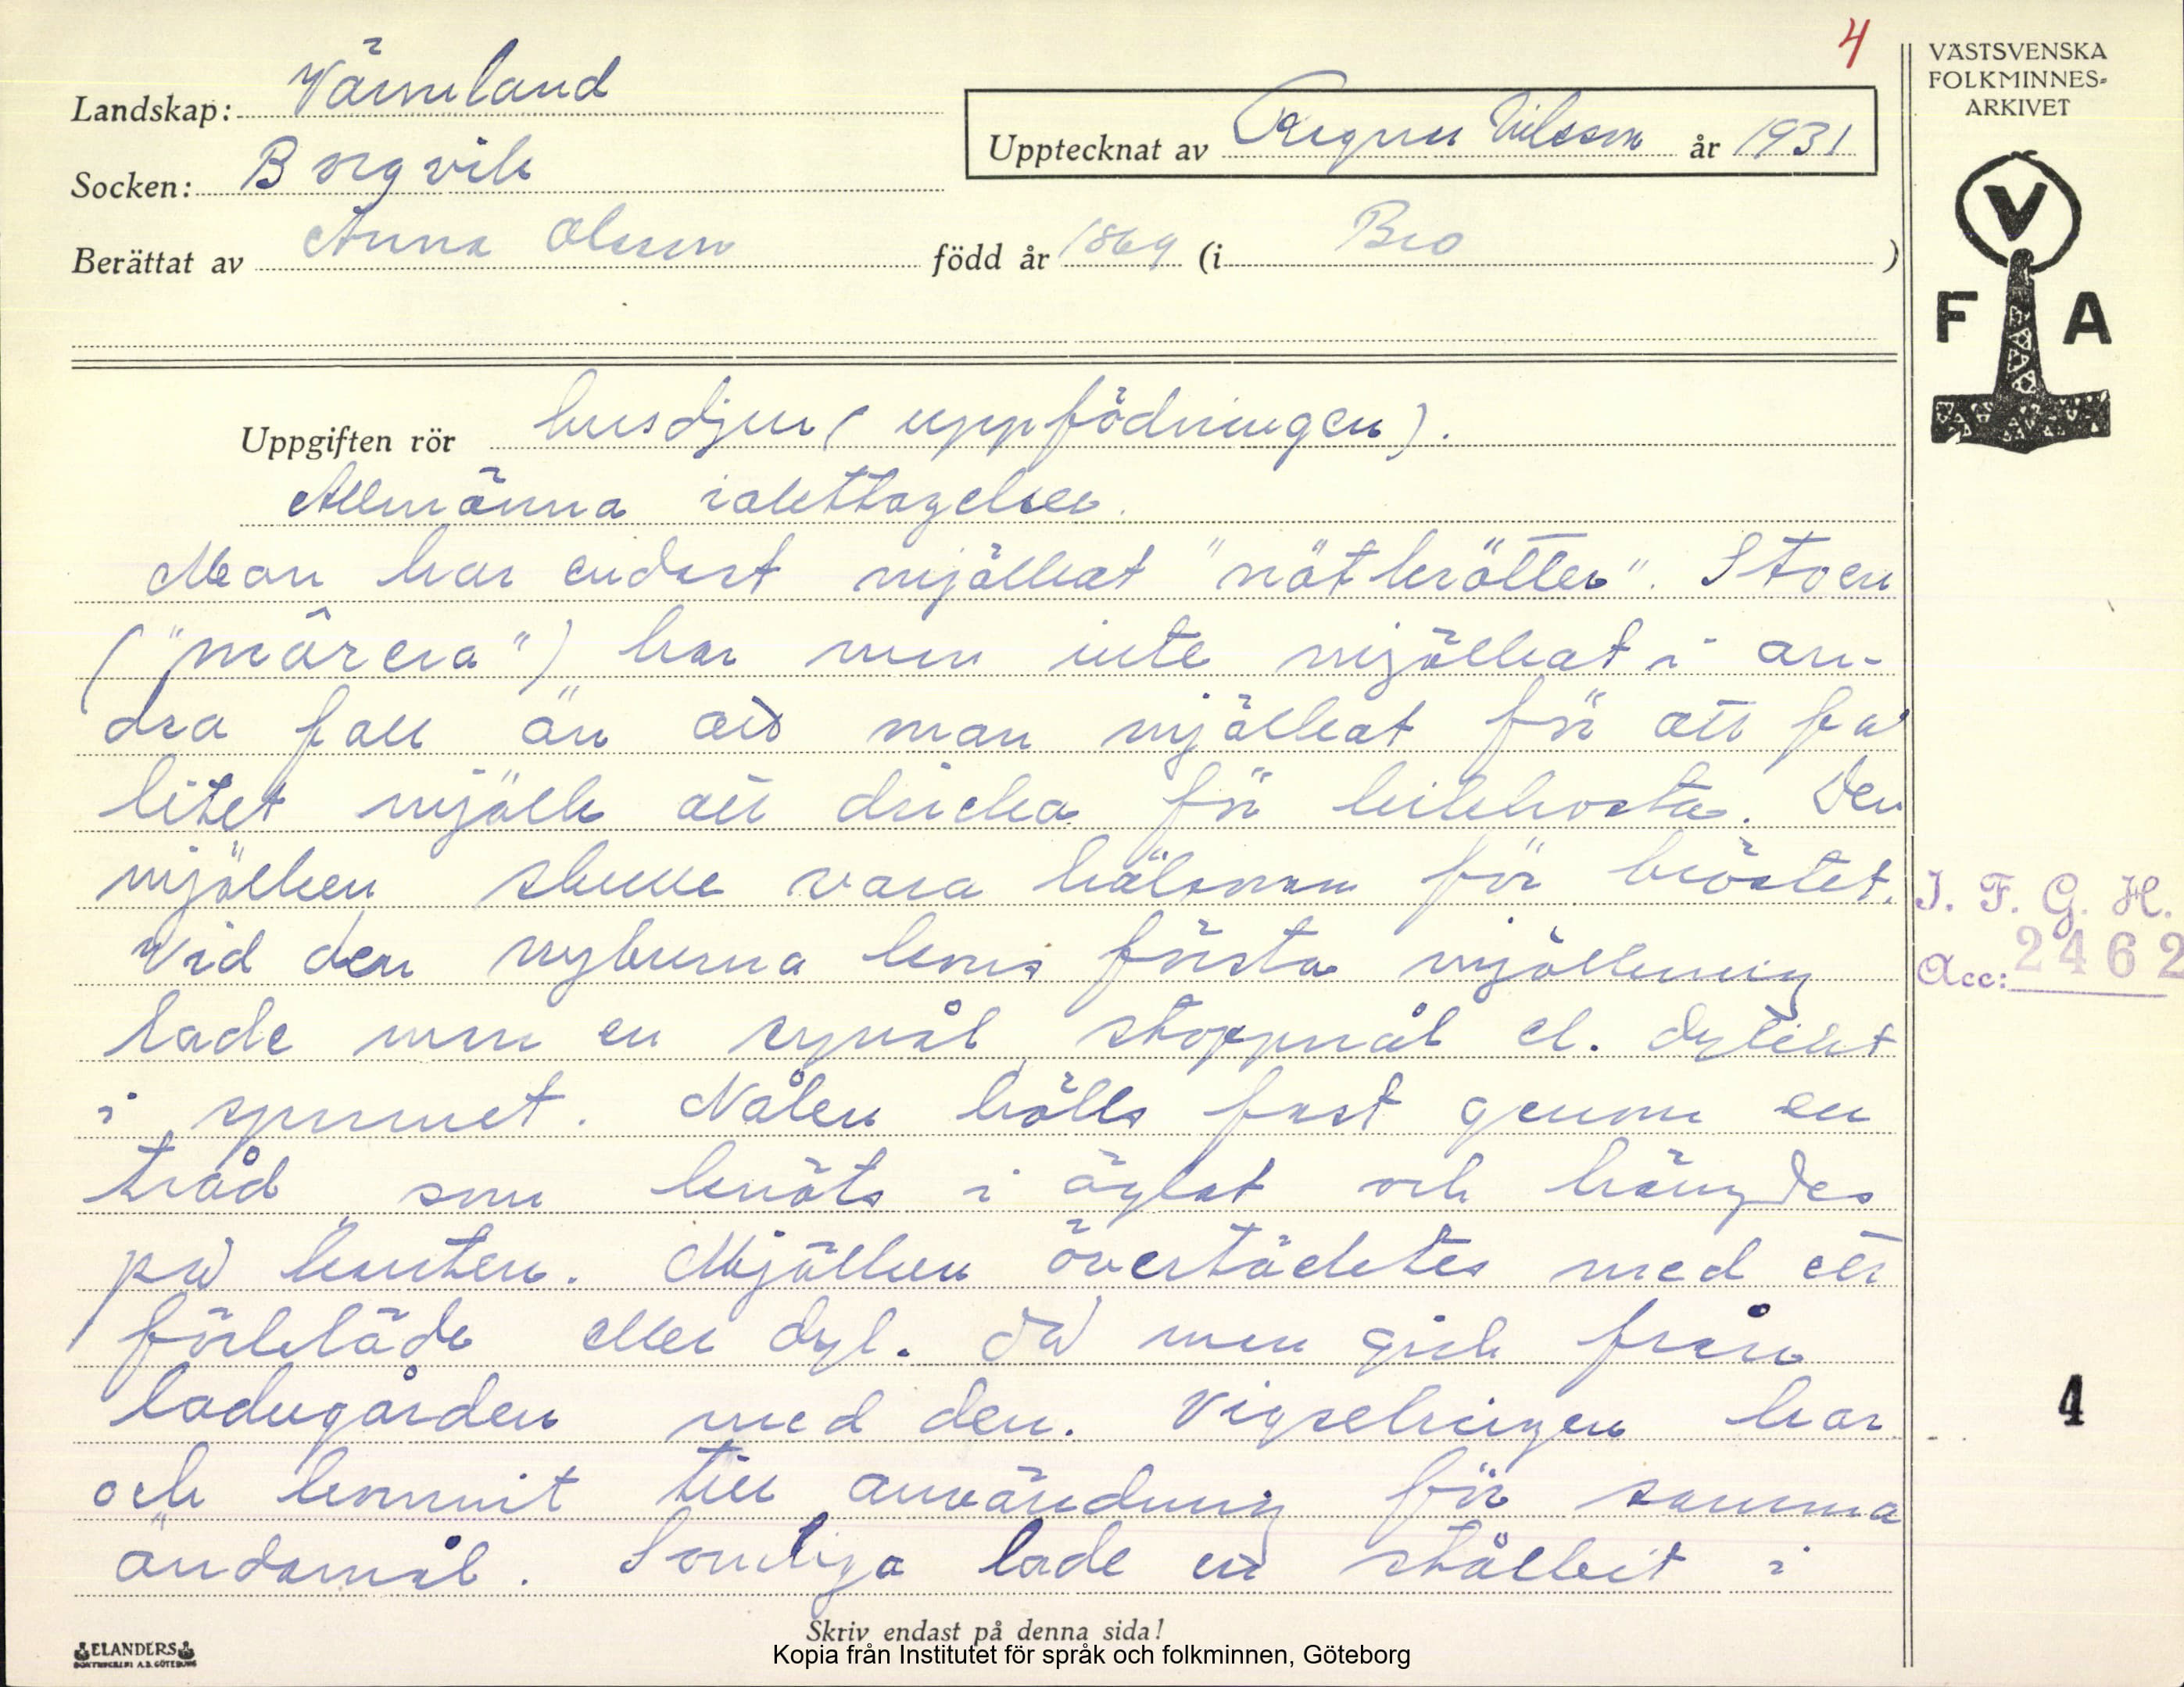 4
VÄSTSVENSKA
FOLKMINNES-
ARKIVET
Landskap: Värmland
Upptecknat av Ragnar Nilsson år 1931
Socken: Borgvik
Berättat av Anna Olsson född år 1869 (i Bro )
V
F A
Uppgiften rör husdjur (uppfödningen).
Allmänna iakttagelser.
Man har endast mjölkat "nötkrötter". Stoen
("märera") har man inte mjölkat i an-
dra fall än att man mjölkat för att få
litet mjölk att dricka för kikhosta. Den
mjölken skulle vara hälsosam för bröstet.
Vid den nyburna kons första mjölkning
lade man en synål, stoppnål el. dylikt
i spannet. Nålen hölls fast genom en
tråd som knöts i öglat och hängdes
på kanten. Mjölken övertäcktes med ett
förkläde eller dyl. då man gick från
ladugården med den. Vigselringen har
ock kommit till användning för samma
ändamål. Somliga lade en stålbit i
I. F. G. H.
Acc: 2462
4
Skriv endast på denna sida!
ELANDERS
BOKTRYCKERI A.B. GÖTEBORG
Kopia från Institutet för språk och folkminnen, Göteborg